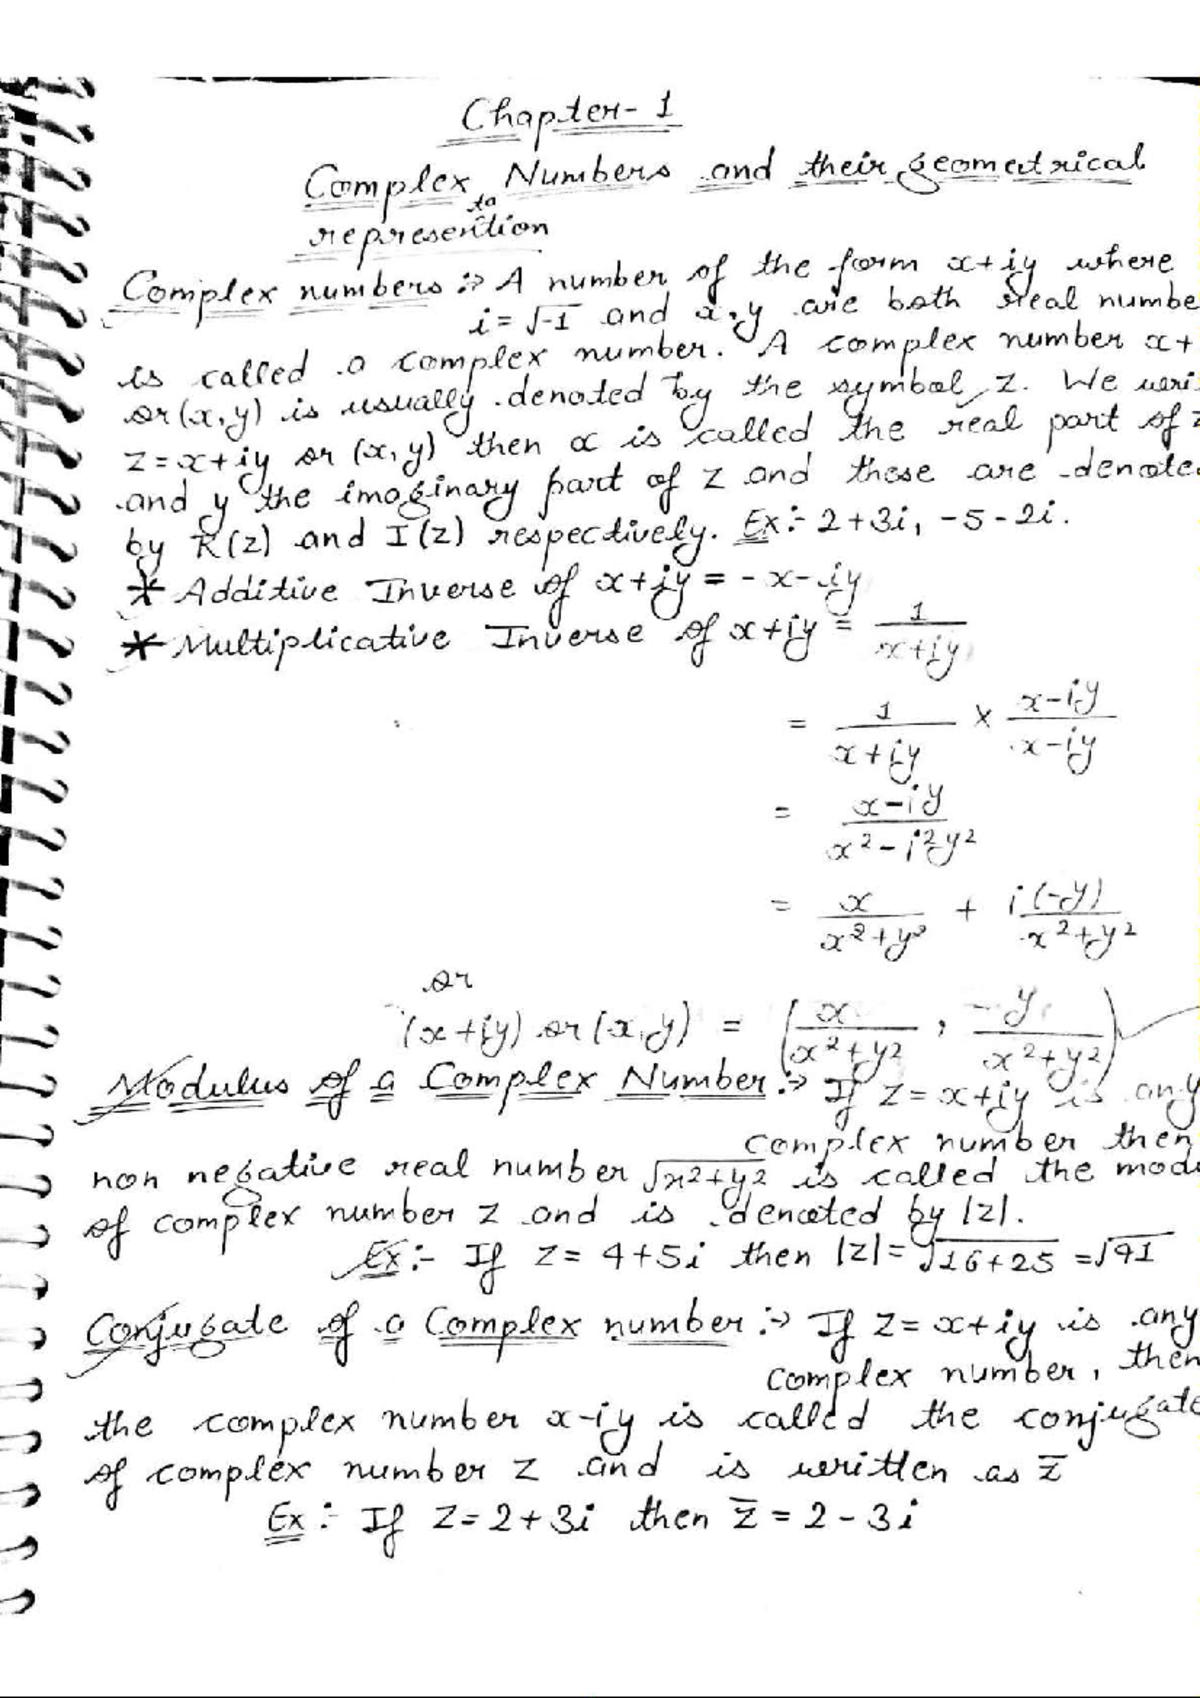 Chapter- 1
Complex Numbers and their geometrical
ta
represention
Complex numbers :→ A number of the form x+iy where
i = √-1 and x, y are both real numbe
is called a complex number. A complex number x+
or (x, y) is usually denoted by the symbol z. We wri
z = x+iy or (x, y) then x is called the real part of z
and y the imaginary part of z and these are denote
by R(z) and I(z) respectively. Ex:- 2+3i, -5-2i.
* Additive Inverse of x+iy = -x-iy
* Multiplicative Inverse of x+iy = 1/(x+iy)
= 1/(x+iy) × (x-iy)/(x-iy)
= (x-iy)/(x²-i²y²)
= x/(x²+y²) + i(-y)/(x²+y²)
or
(x+iy) or (x,y) = (x/(x²+y²), -y/(x²+y²))
Modulus of a Complex Number :→ If z = x+iy is any
complex number then
non negative real number √x²+y² is called the modu
of complex number z and is denoted by |z|.
Ex:- If z = 4+5i then |z| = √16+25 = √41
Conjugate of a Complex number :→ If z = x+iy is any
complex number, then
the complex number x-iy is called the conjugate
of complex number z and is written as z̄
Ex:- If z = 2+3i then z̄ = 2-3i